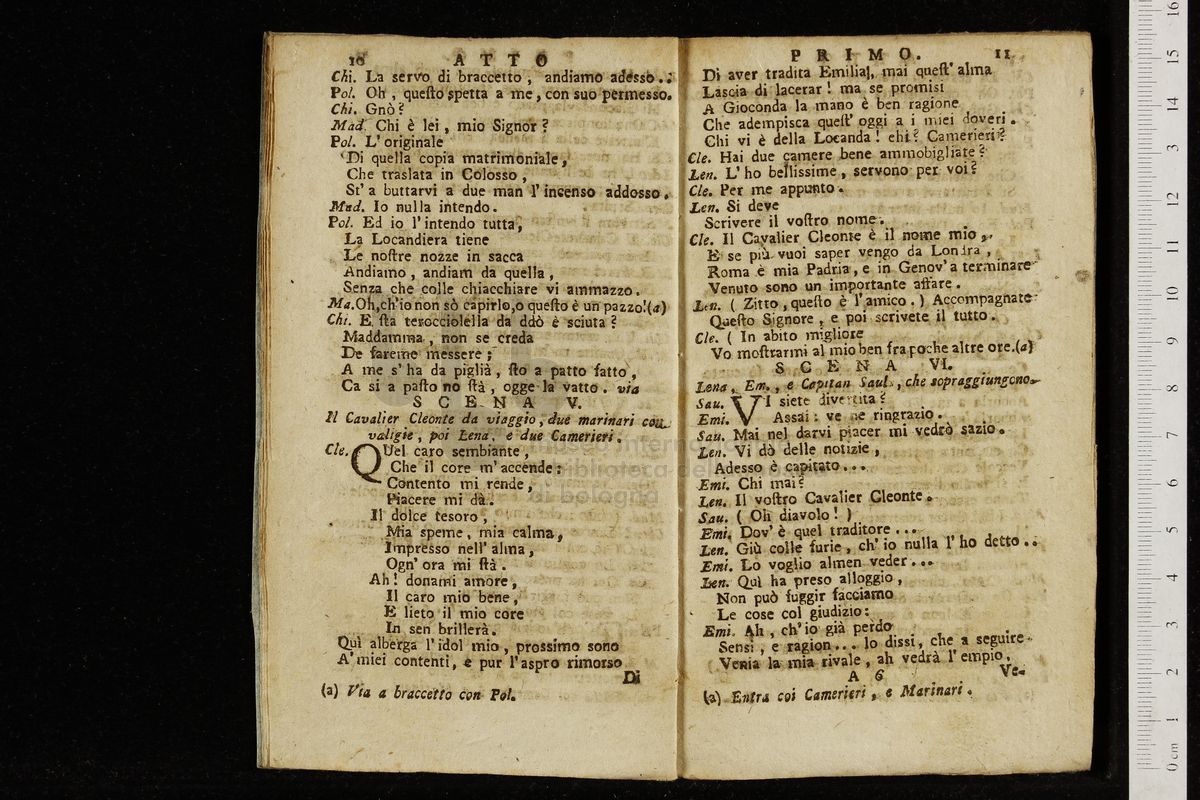 10 ATTO
Chi. La servo di braccetto, andiamo adesso..
Pol. Oh, queſto ſpetta a me, con suo permesso.
Chi. Gnò?
Mad. Chi è lei, mio Signor?
Pol. L'originale
Di quella copia matrimoniale,
Che traslata in Colosso,
St'a buttarvi a due man l'incenso addosso.
Mad. Io nulla intendo.
Pol. Ed io l'intendo tutta,
La Locandiera tiene
Le noſtre nozze in sacca
Andiamo, andiam da quella,
Senza che colle chiacchiare vi ammazzo.
Ma. Oh, ch'io non sò capirlo, o queſto è un pazzo!(a)
Chi. E ſta terocciolella da ddò è sciuta?
Maddamma, non se creda
De fareme messere;
A me s'ha da piglià, ſto a patto fatto,
Ca si a paſto no ſtà, ogge la vatto. via
SCENA V.
Il Cavalier Cleonte da viaggio, due marinari con
valigie, poi Lena, e due Camerieri.
Cle. QUel caro sembiante,
Che il core m'accende:
Contento mi rende,
Piacere mi dà.
Il dolce tesoro,
Mia speme, mia calma,
Impresso nell'alma,
Ogn'ora mi ſtà.
Ah! donami amore,
Il caro mio bene,
E lieto il mio core
In sen brillerà.
Quì alberga l'idol mio, prossimo sono
A'miei contenti, e pur l'aspro rimorso
Di
(a) Via a braccetto con Pol.
PRIMO. 11
Di aver tradita Emilia, mai queſt'alma
Lascia di lacerar! ma se promisi
A Gioconda la mano è ben ragione
Che adempisca queſt'oggi a i miei doveri.
Chi vi è della Locanda! ehi? Camerieri?
Cle. Hai due camere bene ammobigliate?
Len. L'ho bellissime, servono per voi?
Cle. Per me appunto.
Len. Si deve
Scrivere il voſtro nome.
Cle. Il Cavalier Cleonte è il nome mio,
E se più vuoi saper vengo da Londra,
Roma è mia Padria, e in Genov'a terminare
Venuto sono un importante affare.
Len. (Zitto, queſto è l'amico.) Accompagnate
Queſto Signore, e poi scrivete il tutto.
Cle. (In abito migliore
Vo moſtrarmi al mio ben fra poche altre ore.(a)
SCENA VI.
Lena, Em., e Capitan Saul., che sopraggiungono.
Sau. VI siete divertita?
Emi. Assai: ve ne ringrazio.
Sau. Mai nel darvi piacer mi vedrò sazio.
Len. Vi dò delle notizie,
Adesso è capitato...
Emi. Chi mai?
Len. Il voſtro Cavalier Cleonte.
Sau. (Oh diavolo!)
Emi. Dov'è quel traditore...
Len. Giù colle furie, ch'io nulla l'ho detto..
Emi. Lo voglio almen veder...
Len. Quì ha preso alloggio,
Non può fuggir facciamo
Le cose col giudizio:
Emi. Ah, ch'io già perdo
Sensi, e ragion... lo dissi, che a seguire
Venia la mia rivale, ah vedrà l'empio,
A 6 Ve-
(a) Entra coi Camerieri, e Marinari.
museo internazionale
biblioteca della musica
di bologna